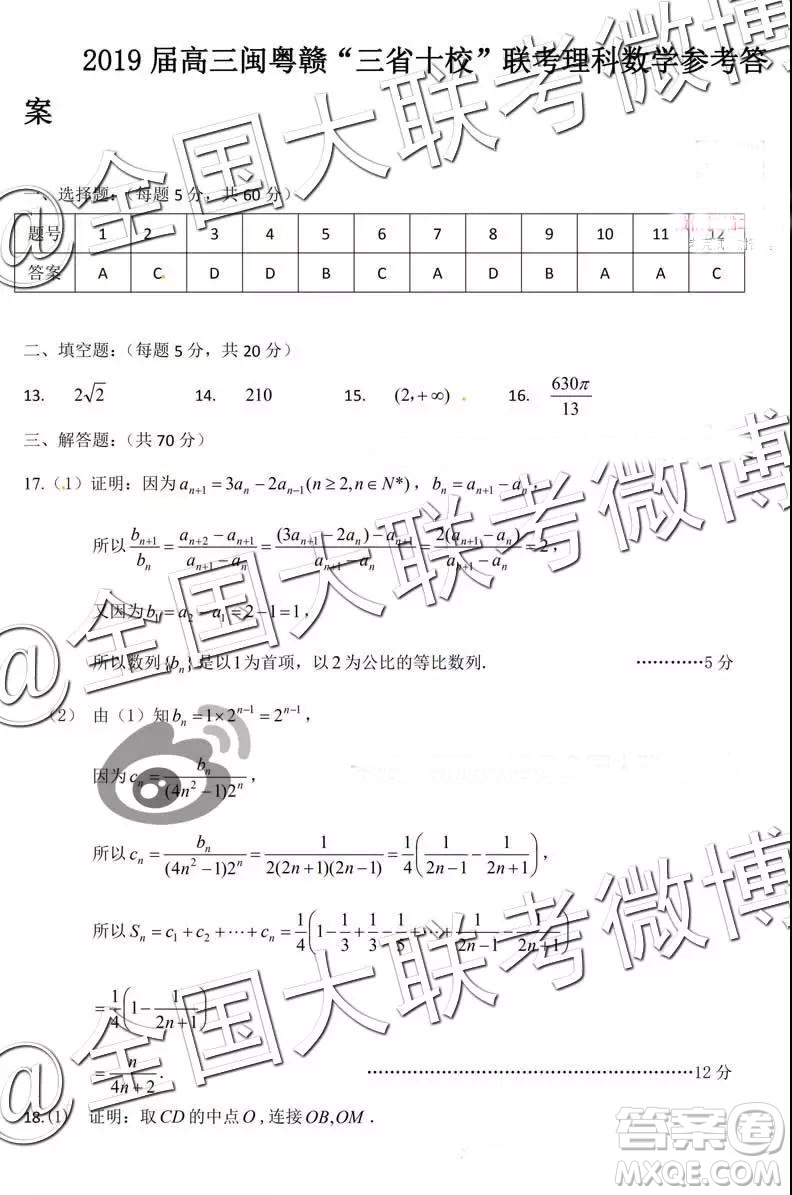 2019 届高三闽粤赣“三省十校”联考理科数学参考答
案
一、选择题：（每题 5 分，共 60 分）
题号 1 2 3 4 5 6 7 8 9 10 11 12
答案 A C D D B C A D B A A C
二、填空题：（每题 5 分，共 20 分）
13. 2√2 14. 210 15. (2,+∞) 16. 630π/13
三、解答题：（共 70 分）
17.（1）证明：因为 a_{n+1} = 3a_n − 2a_{n−1}(n ≥ 2, n ∈ N*)，b_n = a_{n+1} − a_n，
所以 b_{n+1}/b_n = (a_{n+2} − a_{n+1})/(a_{n+1} − a_n) = ((3a_{n+1} − 2a_n) − a_{n+1})/(a_{n+1} − a_n) = 2(a_{n+1} − a_n)/(a_{n+1} − a_n) = 2，
又因为 b_1 = a_2 − a_1 = 2 − 1 = 1，
所以数列{b_n}是以 1 为首项，以 2 为公比的等比数列. …………5 分
（2） 由（1）知 b_n = 1×2^{n−1} = 2^{n−1}，
因为 c_n = b_n/((4n² −1)2^n)，
所以 c_n = b_n/((4n² −1)2^n) = 1/(2(2n+1)(2n−1)) = 1/4(1/(2n−1) − 1/(2n+1))，
所以 S_n = c_1 + c_2 + ⋯ + c_n = 1/4(1 − 1/3 + 1/3 − 1/5 + ⋯ + 1/(2n−1) − 1/(2n+1))
= 1/4(1 − 1/(2n+1))
= n/(4n+2). ……………………………………………………12 分
18.(1) 证明：取 CD 的中点 O ,连接 OB,OM .
@全国大联考微博
@全国大联考微博
@全国大联考微博
答案卷
MXQE.COM